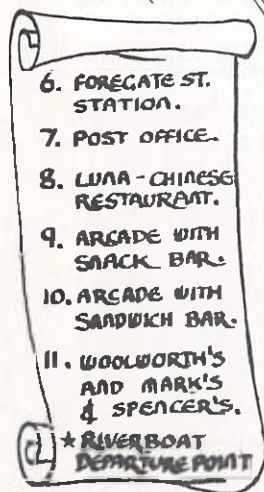 6. FOREGATE ST.
STATION.
7. POST OFFICE.
8. LUNA - CHINESE
RESTAURANT.
9. ARCADE WITH
SNACK BAR.
10. ARCADE WITH
SANDWICH BAR.
11. WOOLWORTH'S
AND MARK'S
& SPENCER'S.
★ RIVERBOAT
DEPARTURE POINT